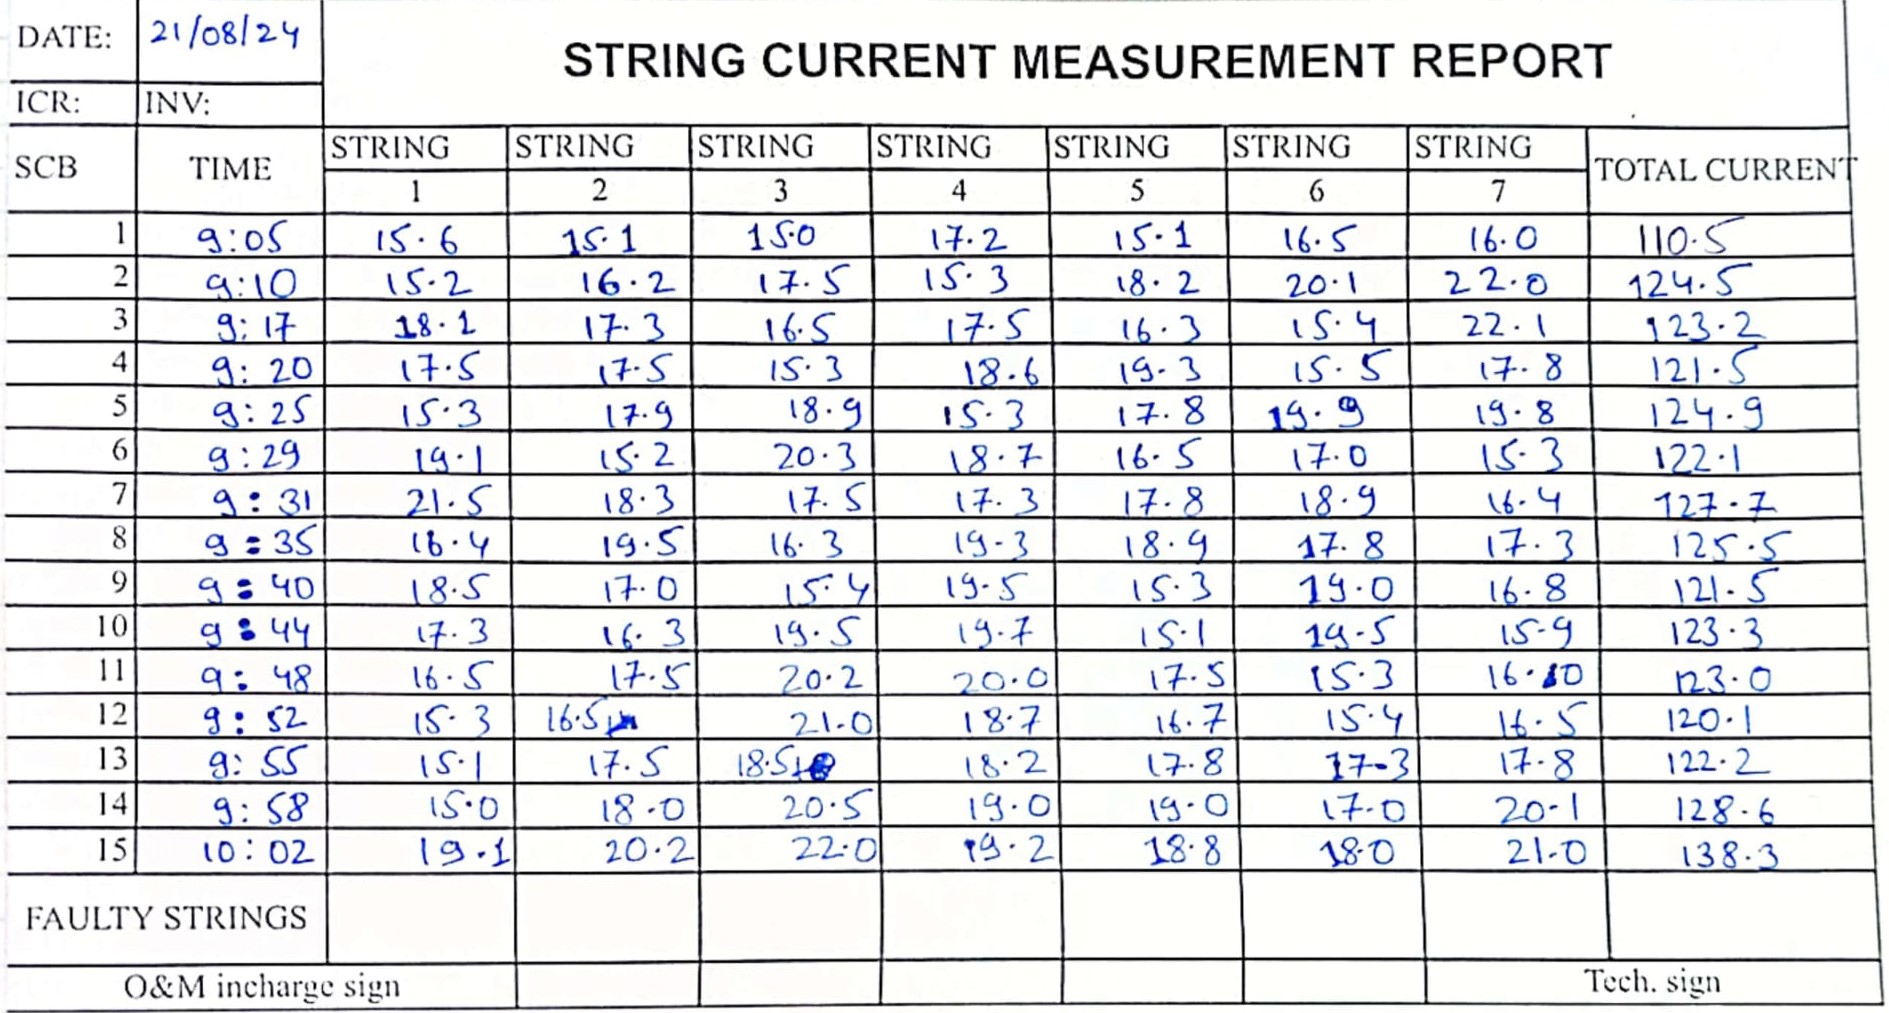 DATE: 21/08/24 STRING CURRENT MEASUREMENT REPORT
ICR: INV:
SCB TIME STRING STRING STRING STRING STRING STRING STRING TOTAL CURRENT
1 2 3 4 5 6 7
1 9:05 15.6 15.1 15.0 17.2 15.1 16.5 16.0 110.5
2 9:10 15.2 16.2 17.5 15.3 18.2 20.1 22.0 124.5
3 9:17 18.1 17.3 16.5 17.5 16.3 15.4 22.1 123.2
4 9:20 17.5 17.5 15.3 18.6 19.3 15.5 17.8 121.5
5 9:25 15.3 17.9 18.9 15.3 17.8 19.9 19.8 124.9
6 9:29 19.1 15.2 20.3 18.7 16.5 17.0 15.3 122.1
7 9:31 21.5 18.3 17.5 17.3 17.8 18.9 16.4 127.7
8 9:35 16.4 19.5 16.3 19.3 18.9 17.8 17.3 125.5
9 9:40 18.5 17.0 15.4 19.5 15.3 19.0 16.8 121.5
10 9:44 17.3 16.3 19.5 19.7 15.1 19.5 15.9 123.3
11 9:48 16.5 17.5 20.2 20.0 17.5 15.3 123.0
12 9:52 15.3 16.5 21.0 18.7 16.7 15.4 16.5 120.1
13 9:55 15.1 17.5 18.5 18.2 17.8 17.3 17.8 122.2
14 9:58 15.0 18.0 20.5 19.0 19.0 17.0 20.1 128.6
15 10:02 19.1 20.2 22.0 19.2 18.8 18.0 21.0 138.3
FAULTY STRINGS
O&M incharge sign Tech. sign